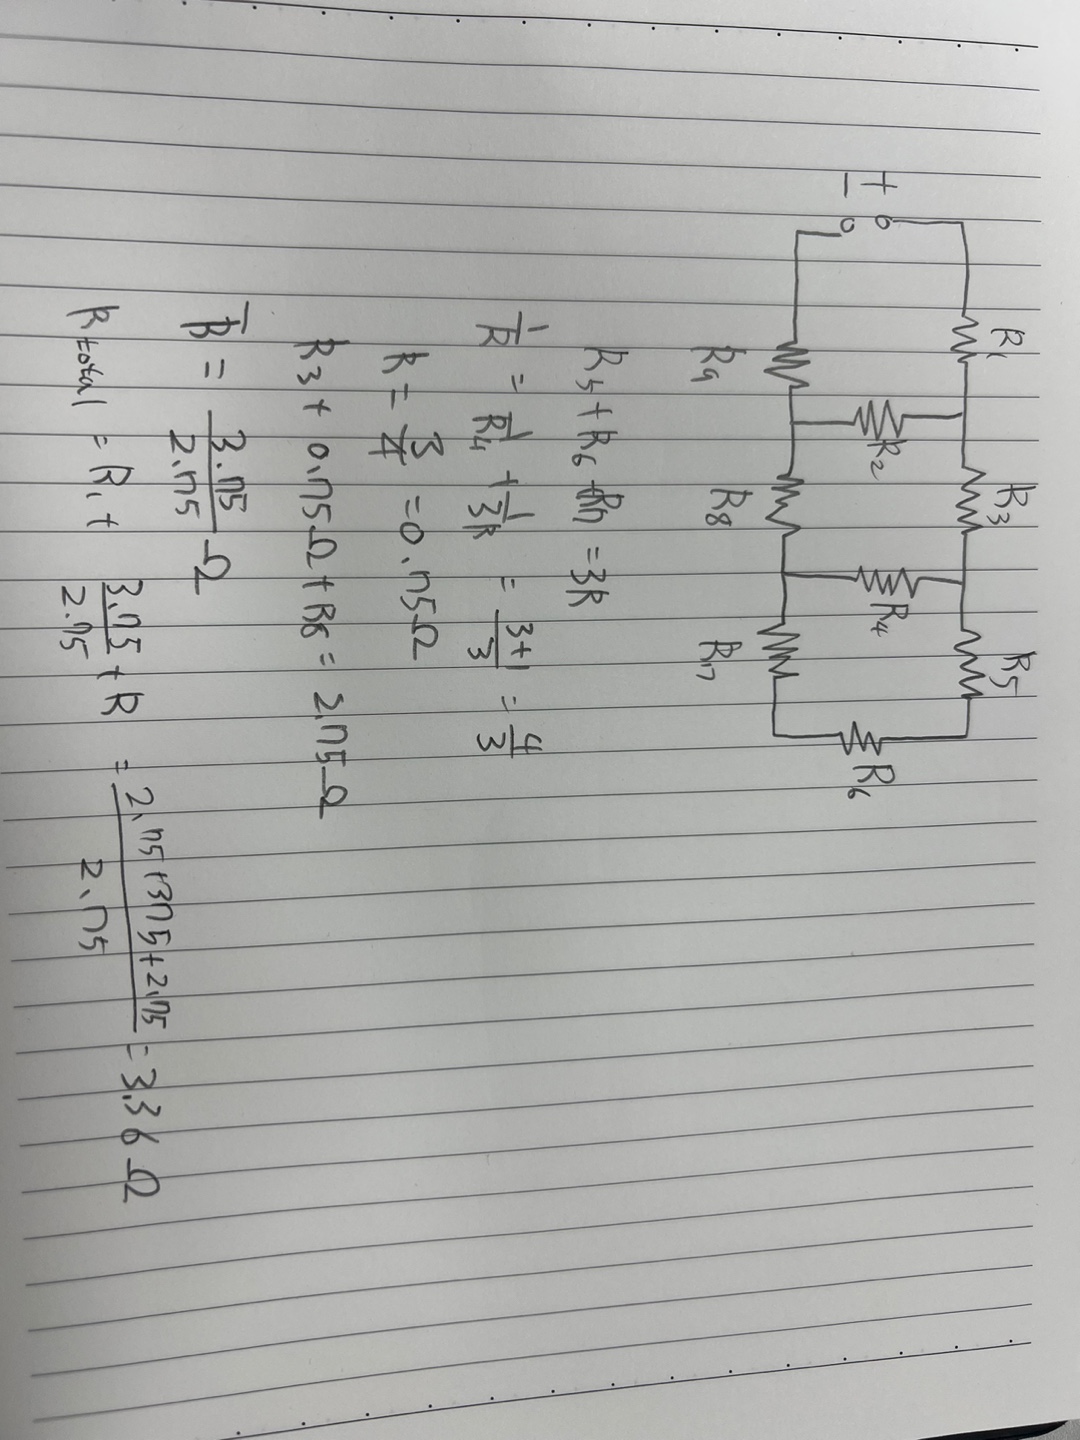 R1 R3 R5
+
−
R2 R4 R6
R9 R8 R7
R5+R6+R7 = 3R
1/R = 1/R4 + 1/3R = 3+1/3 = 4/3
R = 3/4 = 0.75Ω
R3 + 0.75Ω + R8 = 2.75Ω
R = 3.75/2.75 Ω
Rtotal = R1 + 3.75/2.75 + R = 2.75+375+2.75/2.75 = 3.36Ω